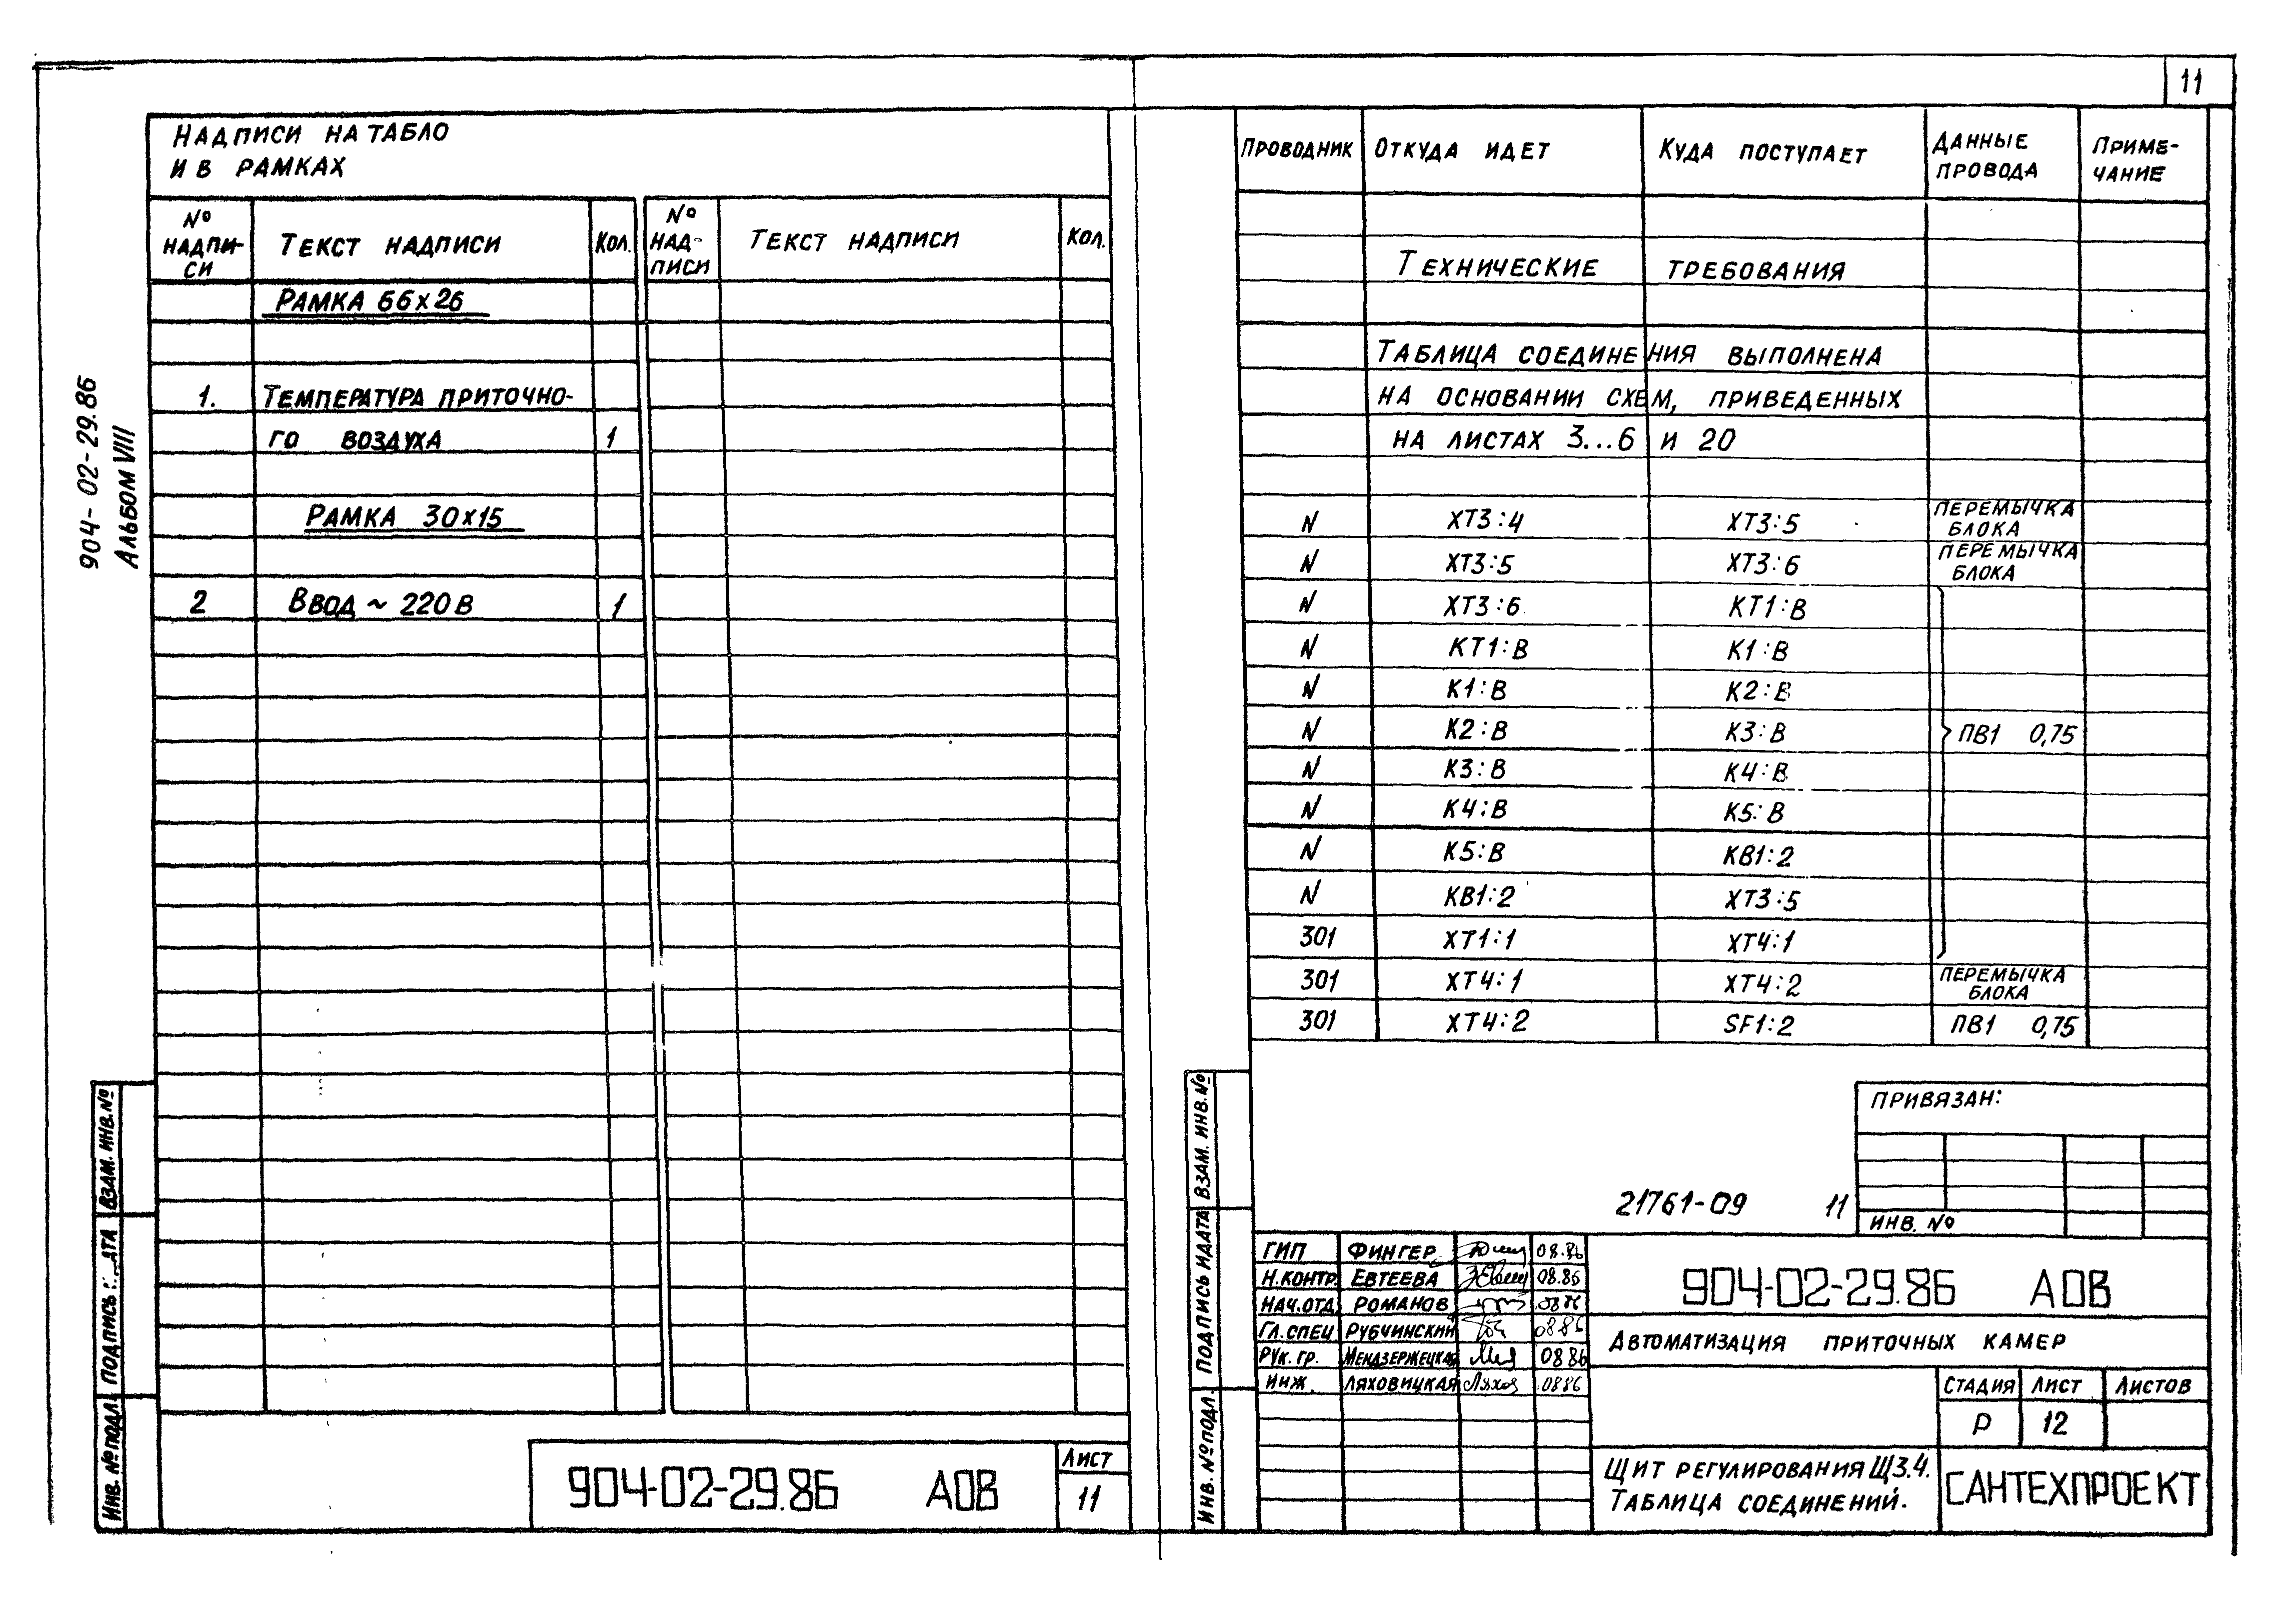 11
904-02-29.86
Альбом VIII
Надписи на табло
и в рамках
№ надпи-си Текст надписи Кол. № над-писи Текст надписи Кол.
Рамка 66х26
1. Температура приточно-
го воздуха 1
Рамка 30х15
2 Ввод ~ 220 В 1
Взам. инв. №
Подпись
Инв. № подл.
904-02-29.86 АОВ
Лист
11
Проводник Откуда идет Куда поступает Данные провода Приме-чание
Технические требования
Таблица соединения выполнена
на основании схем, приведенных
на листах 3...6 и 20
N ХТ3:4 ХТ3:5 Перемычка блока
N ХТ3:5 ХТ3:6 Перемычка блока
N ХТ3:6 КТ1:В
N КТ1:В К1:В
N К1:В К2:В
N К2:В К3:В ПВ1 0,75
N К3:В К4:В
N К4:В К5:В
N К5:В КВ1:2
N КВ1:2 ХТ3:5
301 ХТ1:1 ХТ4:1
301 ХТ4:1 ХТ4:2 Перемычка блока
301 ХТ4:2 SF1:2 ПВ1 0,75
Взам. инв. №
Подпись и дата
Инв. № подл.
Привязан:
Инв. №
21761-09 11
ГИП Фингер 08.86
Н.контр. Евтеева 08.86
Нач.отд. Романов 0886
Гл.спец Рубчинский 0886
Рук. гр. Мендзержецкая 0886
Инж. Ляховицкая 0886
904-02-29.86 АОВ
Автоматизация приточных камер
Стадия Лист Листов
Р 12
Щит регулирования Щ3.4.
Таблица соединений.
САНТЕХПРОЕКТ